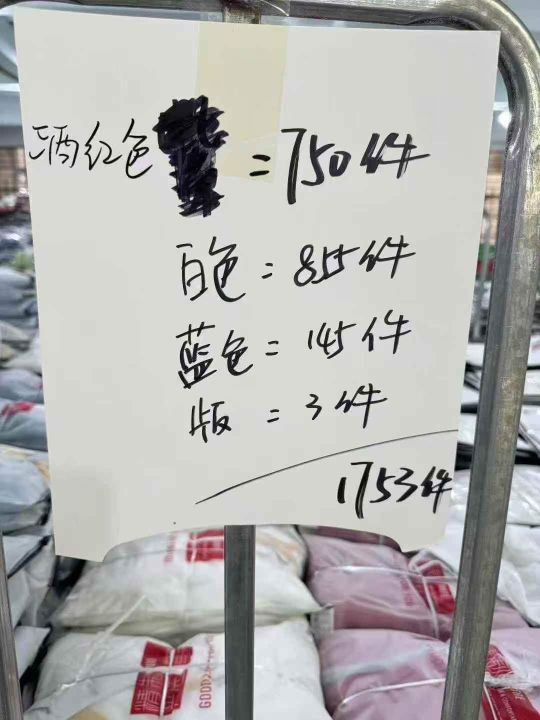 酒红色 = 750件
白色 = 855件
蓝色 = 145件
版 = 3件
1753件